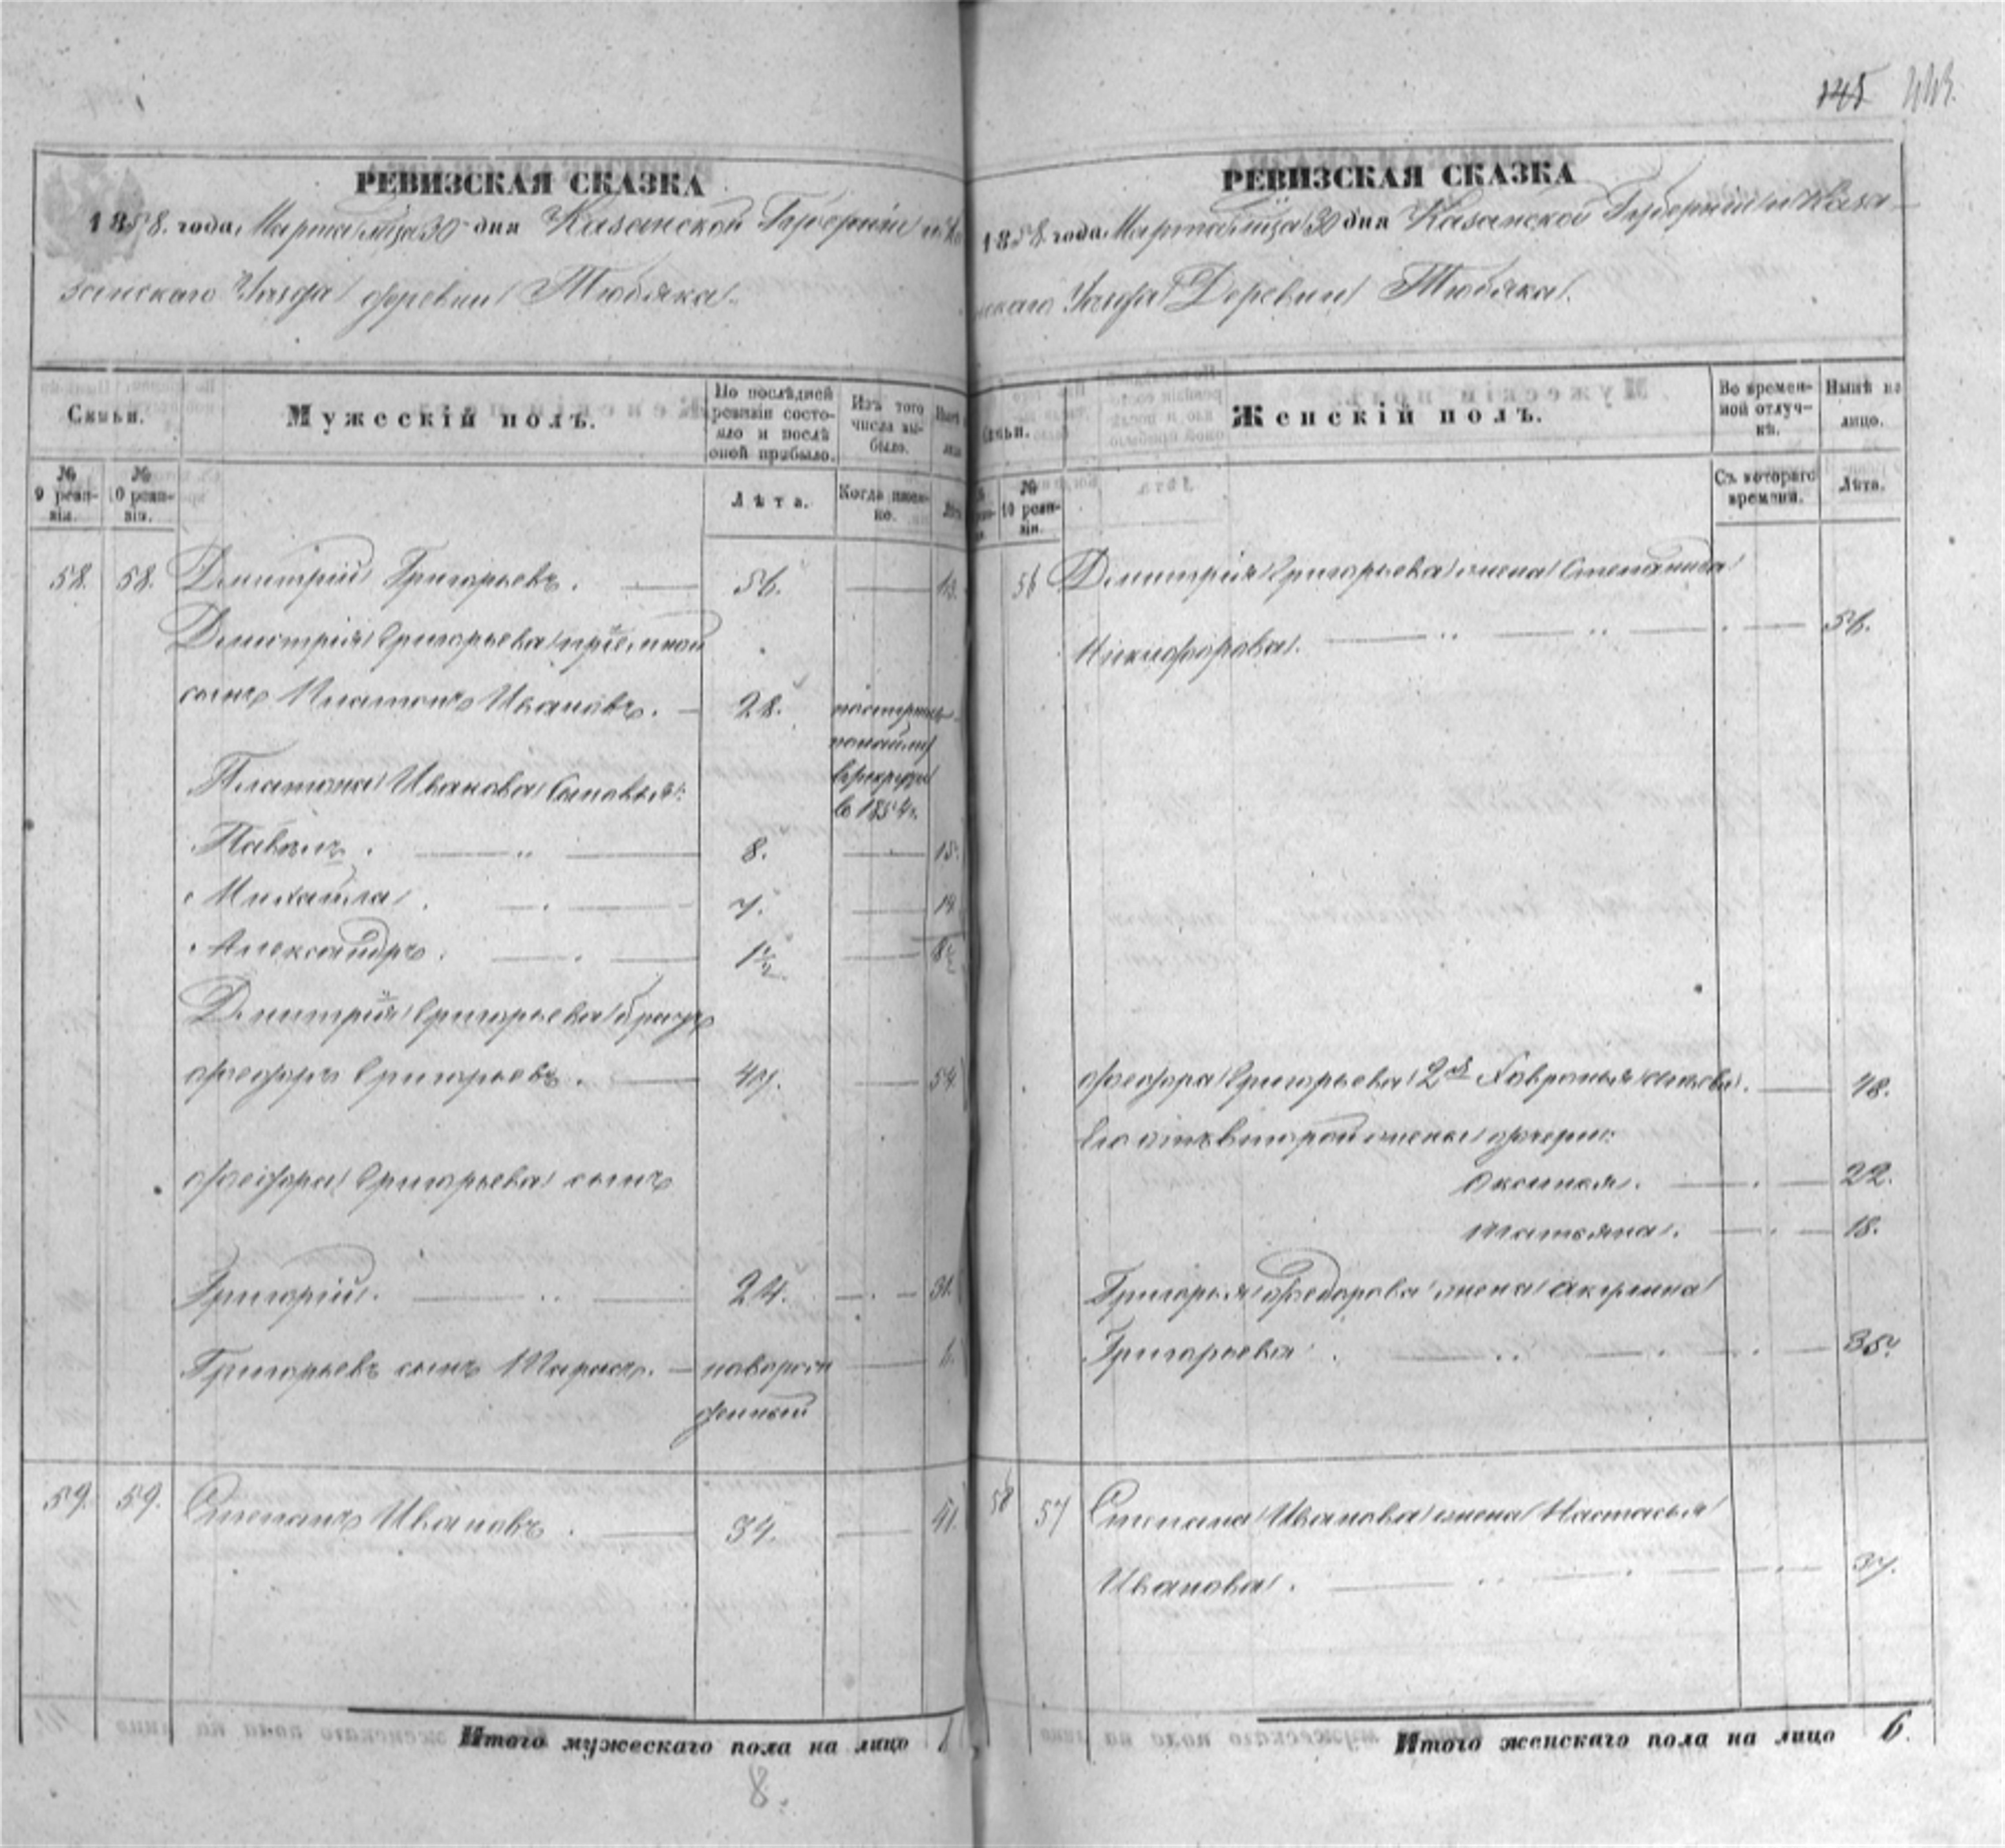 145 443.
РЕВИЗСКАЯ СКАЗКА
1858. года, Марта мца 30 дня Казанской Губерніи и Ка
занскаго Уезда деревни Тюбяка.
Семьи.
Мужескій полъ.
По послѣдней ревизіи состояло и послѣ оной прибыло.
Изъ того числа выбыло.
№ 9 ревизіи.
№ 10 ревизіи.
Лѣта.
Когда именно.
58. 58. Дмитрій Григорьевъ. 56.
Дмитрія Григорьева пріемной
сынъ Платонъ Ивановъ. 28.
Платона Иванова сыновья:
в рекруты
в 1854 г.
Павелъ. 8. 15.
Михайла. 7.
Александръ. 1½ 8½
Дмитрія Григорьева братъ
Феодоръ Григорьевъ. 47. 54.
Феодора Григорьева сынъ
Григорій. 24. 31.
Григорьевъ сынъ Тарасъ. новорож
денный 6.
59. 59. Степанъ Ивановъ. 34. 41.
Итого мужескаго пола на лицо
8.
РЕВИЗСКАЯ СКАЗКА
1858. года, Марта мца 30 дня Казанской Губерніи и Каза
нскаго Уезда Деревни Тюбяка.
Семьи.
Женскій полъ.
Во временной отлучкѣ.
Нынѣ на лицо.
№ 10 ревизіи.
Съ котораго времени.
Лѣта.
56 Дмитрія Григорьева жена Степанида
Никифорова. 56.
Феодора Григорьева 2я Хавронья 48.
Его отъ второй жены дочери:
Аксинья. 22.
Татьяна. 18.
Григорья Федорова жена Акулина
Григорьева 35.
58 57 Степана Иванова жена Настасья
Иванова. 37.
Итого женскаго пола на лицо 6.